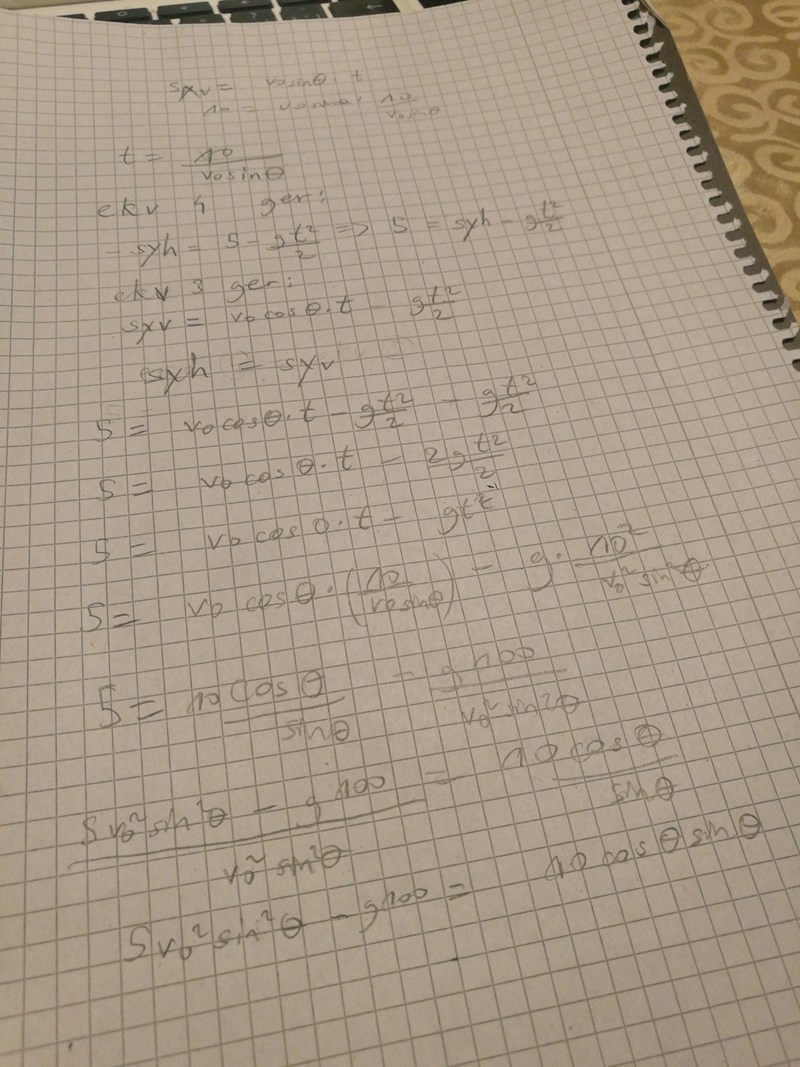 sxv = v₀sinθ · t
10 = v₀sinθ · 10/v₀sinθ
t = 10/v₀sinθ
ekv 4 ger:
-syh = 5 - gt²/2 => 5 = syh - gt²/2
ekv 3 ger:
sxv = v₀cosθ·t - gt²/2
syh = syv
5 = v₀cosθ·t - gt²/2 - gt²/2
5 = v₀cosθ·t - 2gt²/2
5 = v₀cosθ·t - gt²
5 = v₀cosθ·(10/v₀sinθ) - g·10²/v₀²sin²θ
5 = 10cosθ/sinθ - g100/v₀²sin²θ
5v₀²sin²θ - g100/v₀²sin²θ = 10cosθ/sinθ
5v₀²sin²θ - g100 = 10cosθsinθ